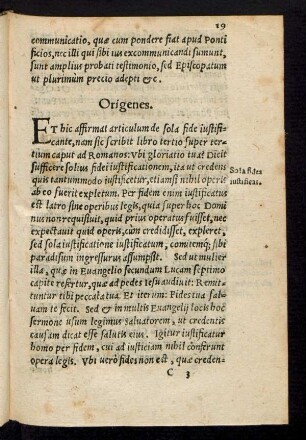 19
communicatio, quæ cum pondere fiat apud Ponti
ficios, nec illi qui sibi ius excommunicandi sumunt,
sunt amplius probati testimonio, sed Episcopatum
ut plurimùm precio adepti &c.
Origenes.
ET hic affirmat articulum de sola fide iustifi-
cante, nam sic scribit libro tertio super ter-
tium caput ad Romanos: Vbi gloriatio tua? Dicit
sufficere solius fidei iustificationem, ita ut creden
quis tantummodo iustificetur, etiamsi nihil operis
ab eo fuerit expletum. Per fidem enim iustificatus
est latro sine operibus legis, quia super hoc Domi
nus non requisiuit, quid prius operatus fuisset, nec
expectauit quid operis, cùm credidisset, expleret,
sed sola iustificatione iustificatum, comitemque sibi
paradisum ingressurus assumpsit. Sed ut mulier
illa, quæ in Euangelio secundum Lucam septimo
capite refertur, quæ ad pedes Iesu audiuit: Remit-
tuntur tibi peccata tua. Et iterum: Fides tua sal-
uam te fecit. Sed & in multis Euangelij locis hoc
sermone usum legimus saluatorem, ut credentis
causam dicat esse salutis eius. Igitur iustificatur
homo per fidem, cui ad iusticiam nihil conferunt
opera legis. Vbi uerò fides non est, quæ creden-
C 3
Sola fides
iustificat.